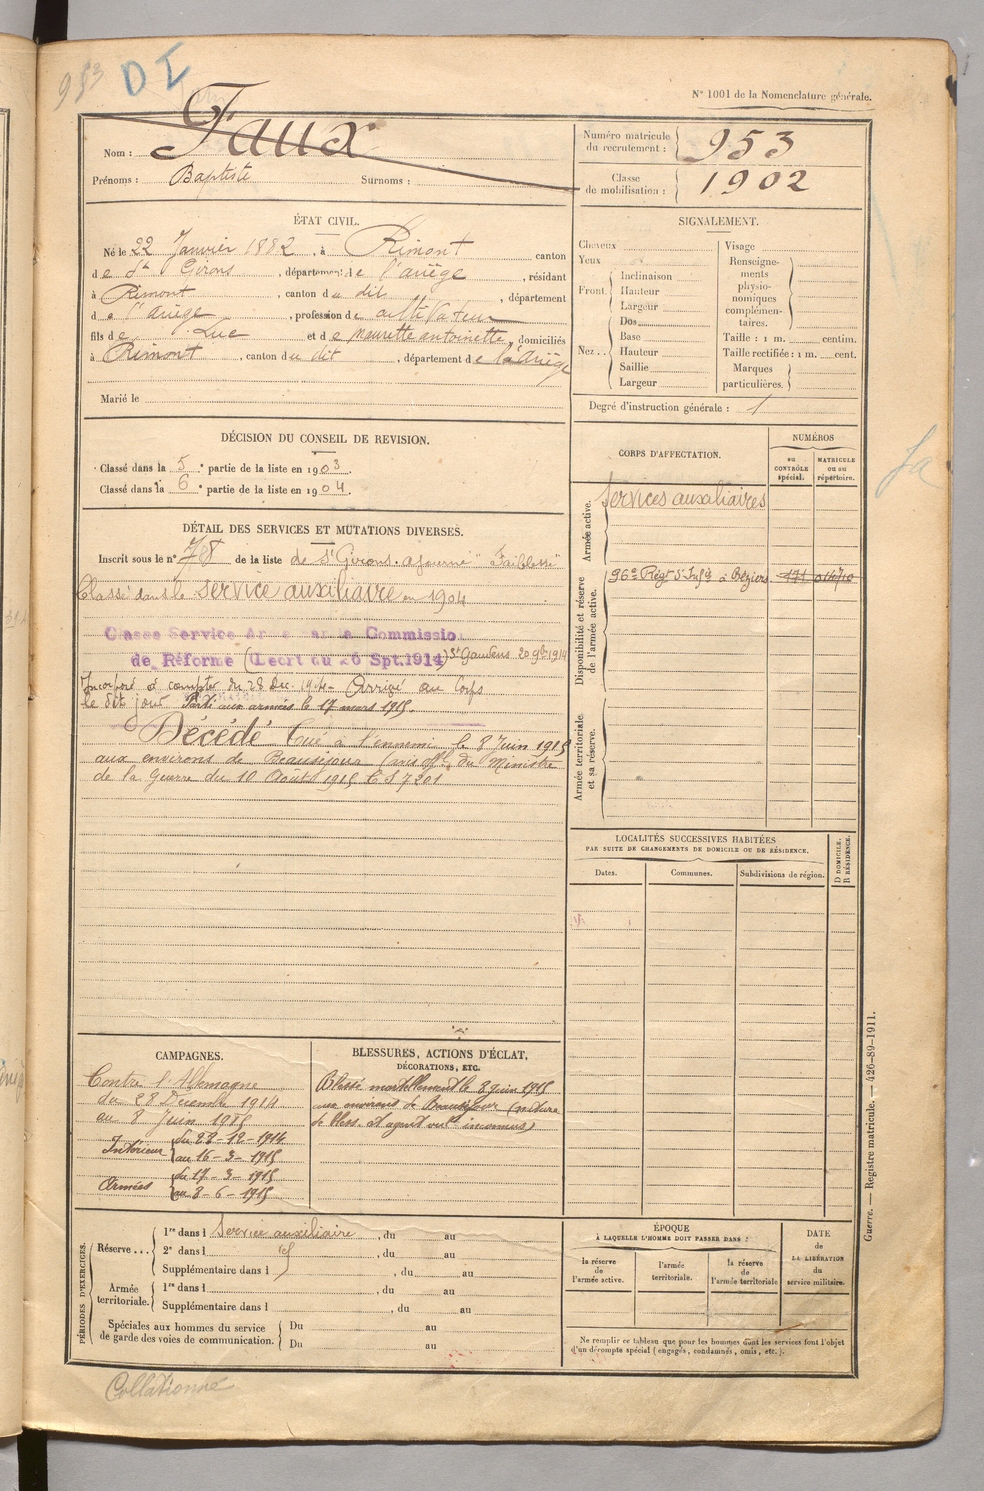 953
D I
N° 1001 de la Nomenclature générale.
Nom : Faux
Prénoms : Baptiste Surnoms :
Numéro matricule du recrutement : 953
Classe de mobilisation : 1902
ÉTAT CIVIL.
Né le 22 Janvier 1882, à Rimont canton
de St Girons, département de l'ariège, résidant
à Rimont, canton du dit, département
de l'ariège, profession de cultivateur
fils de Luc et de Maurette antoinette, domiciliés
à Rimont, canton du dit, département de l'ariège
Marié le
SIGNALEMENT.
Cheveux
Yeux
Front. Inclinaison
Hauteur
Largeur
Nez.. Dos
Base
Hauteur
Saillie
Largeur
Visage
Renseignements physionomiques complémentaires.
Taille : 1 m. centim.
Taille rectifiée : 1 m. cent.
Marques particulières.
Degré d'instruction générale : 1
DÉCISION DU CONSEIL DE REVISION.
Classé dans la 5e partie de la liste en 1903
Classé dans la 6e partie de la liste en 1904
CORPS D'AFFECTATION.
NUMÉROS
au CONTRÔLE spécial.
MATRICULE ou au répertoire.
Armée active.
Services auxiliaires
Disponibilité et réserve de l'armée active.
96e Régt d'Infie à Béziers 171
Armée territoriale et sa réserve.
DÉTAIL DES SERVICES ET MUTATIONS DIVERSES.
Inscrit sous le n° 78 de la liste de St Girons. ajourné "Faiblesse"
Classé dans le service auxiliaire en 1904
Classé Service Armé par la Commission
de Réforme (Décret du 26 Spt. 1914) St Gaudens 20 9bre 1914
Incorporé à compter du 28 Dec. 1914 - Arrivé au Corps
le dit jour Parti aux armées le 17 mars 1915.
Décédé tué à l'ennemi le 8 Juin 1915
aux environs de Beauséjour (avis off. du Ministre
de la Guerre du 10 Août 1915 C S 7201
LOCALITÉS SUCCESSIVES HABITÉES
PAR SUITE DE CHANGEMENTS DE DOMICILE OU DE RÉSIDENCE.
Dates. Communes. Subdivisions de région. D DOMICILE. R RÉSIDENCE.
CAMPAGNES.
Contre l'Allemagne
du 28 Décembre 1914
au 8 Juin 1915
Intérieur du 28-12-1914
au 16-3-1915
Armées du 17-3-1915
au 8-6-1915
BLESSURES, ACTIONS D'ÉCLAT,
DÉCORATIONS, ETC.
Blessé mortellement le 8 juin 1915
aux environs de Beauséjour (nature
de bless. et agent vulnt inconnus)
PÉRIODES D'EXERCICES.
Réserve... 1re dans l Service auxiliaire, du au
2e dans l id, du au
Supplémentaire dans l, du au
Armée territoriale. 1re dans l, du au
Supplémentaire dans l, du au
Spéciales aux hommes du service de garde des voies de communication. Du au
Du au
ÉPOQUE
À LAQUELLE L'HOMME DOIT PASSER DANS :
la réserve de l'armée active.
l'armée territoriale.
la réserve de l'armée territoriale
DATE DE LA LIBÉRATION du service militaire.
Ne remplir ce tableau que pour les hommes dont les services font l'objet
d'un décompte spécial (engagés, condamnés, omis, etc.).
Guerre. — Registre matricule. — 426-89-1911.
Collationné